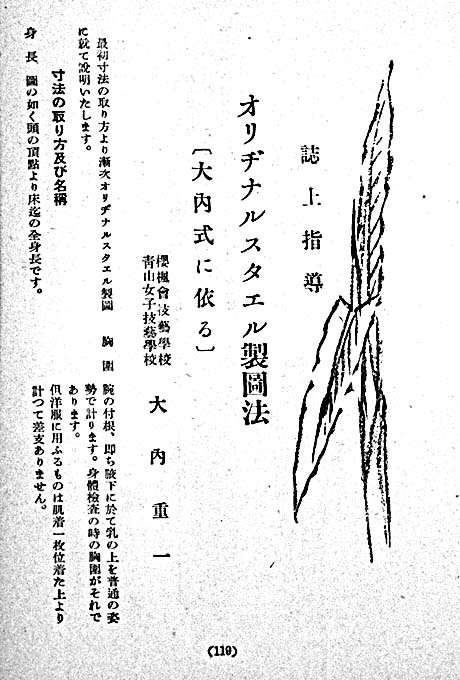 誌上指導
オリヂナルスタエル製圖法
〔大內式に依る〕
櫻楓會技藝學校
靑山女子技藝學校
大內重一
最初寸法の取り方より漸次オリヂナルスタエル製圖
に就て說明いたします。
寸法の取り方及び名稱
身長 圖の如く頭の頂點より床迄の全身長です。
胸圍
腕の付根、卽ち腋下に於て乳の上を普通の姿
勢で計ります。身體檢査の時の胸圍がそれで
あります。
但洋服に用ふるものは肌着一枚位着た上より
計つて差支ありません。
(119)